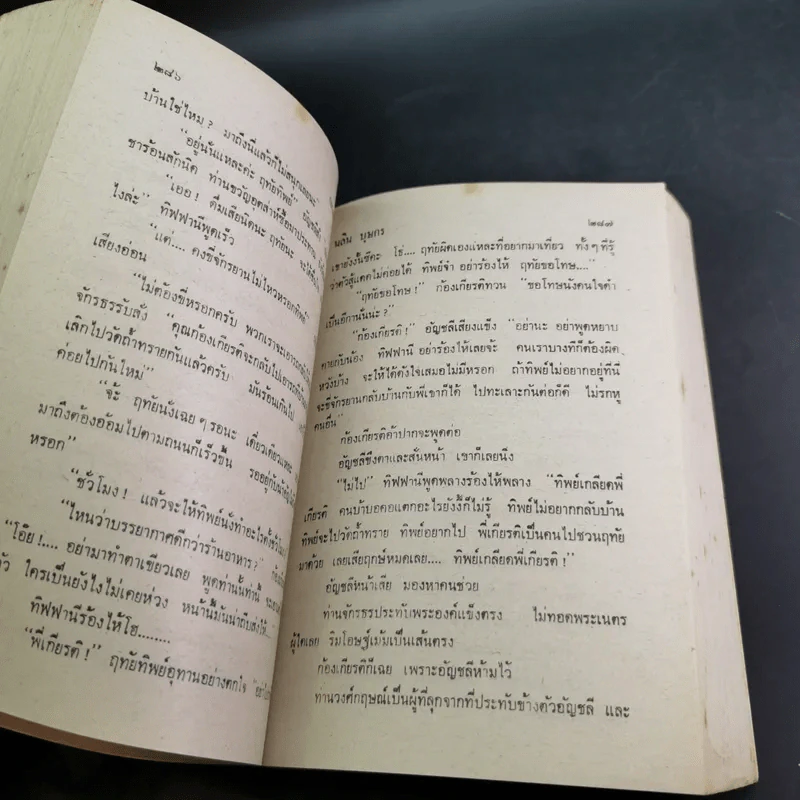 ๒๘๖
บ้านใช่ไหม? มาถึงนี่แล้วก็ไม่สนุกเลยนะ"
"อยู่นั่นแหละค่ะ ฤทัยทิพย์" อัญชลี
ชาร้อนสักนิด ท่านขวัญอุตส่าห์ชื้อมาประทาน
"เออ! ดื่มเสียนิดนะ ฤทัยนะ จะให้
ไงล่ะ" ทิฟฟานีพูดเร็ว
"แต่.... คงขี่จักรยานไม่ไหวหรอกทิพย์"
เสียงอ่อน
"ไม่ต้องขี่หรอกครับ พวกเราจะเอารถ
จักรธรรับสั่ง "คุณก้องเกียรติจะกลับไปเอารถที่
เลิกไปวัดถ้ำทรายกันแล้วครับ มันร้อนเกินไป
ค่อยไปกันใหม่"
"จ้ะ ฤทัยนั่งเฉยๆรอนะ เดี๋ยวเดียวแหละ
มาถึงต้องอ้อมไปตามถนนก็เร็วขึ้น รออยู่กับ
หรอก"
"ชั่วโมง! แล้วจะให้ทิพย์นั่งทำอะไรตั้งชั่วโมง
"ไหนว่าบรรยากาศดีกว่าร้านอาหาร?
"โอ๊ย!.... อย่ามาทำตาเขียวเลย พูดเท่านั้นเท่านี้
ใครเป็นยังไงไม่เคยห่วง หน้านี้มันน่าถีบส่งให้...."
ทิฟฟานีร้องไห้โฮ........
"พี่เกียรติ!" ฤทัยทิพย์อุทานอย่างตกใจ
นลิน บุษกร ๒๘๗
เขายังงั้นซีคะ โธ่.... ฤทัยผิดเองแหละที่อยากมาเที่ยว ทั้งๆที่รู้
ว่าตัวสู้แดดไม่ค่อยได้ ทิพย์จ๋า อย่าร้องไห้ ฤทัยขอโทษ...."
"ฤทัยขอโทษ!" ก้องเกียรติทวน "ขอโทษนังคนใจดำ
เป็นอีกานั่นนะ?"
"ก้องเกียรติ!" อัญชลีเสียงแข็ง "อย่านะ อย่าพูดหยาบ
คายกับน้อง ทิฟฟานี อย่าร้องไห้เลยจ้ะ คนเราบางทีก็ต้องผิด
หวังบ้าง จะให้ได้ดังใจเสมอไม่มีหรอก ถ้าทิพย์ไม่อยากอยู่ที่นี่
จะขี่จักรยานกลับบ้านกับพี่เขาก็ได้ ไปทะเลาะกันต่อก็ดี ไม่รกหู
คนอื่น"
ก้องเกียรติอ้าปากจะพูดต่อ
อัญชลีขึงตาและสั่นหน้า เขาก็เลยนิ่ง
"ไม่ไป" ทิฟฟานีพูดพลางร้องไห้พลาง "ทิพย์เกลียดพี่
เกียรติ คนบ้าบอคอแตกอะไรยังงี้ก็ไม่รู้ ทิพย์ไม่อยากกลับบ้าน
ทิพย์จะไปวัดถ้ำทราย ทิพย์อยากไป พี่เกียรติเป็นคนไปชวนฤทัย
มาด้วย เลยเสียฤกษ์หมดเลย.... ทิพย์เกลียดพี่เกียรติ!"
อัญชลีหน้าเสีย มองหาคนช่วย
ท่านจักรธรประทับพระองค์แข็งตรง ไม่ทอดพระเนตร
ผู้ใดเลย ริมโอษฐ์เม้มเป็นเส้นตรง
ก้องเกียรติก็เฉย เพราะอัญชลีห้ามไว้
ท่านวงศ์กฤษณ์เป็นผู้ที่ลุกจากที่ประทับข้างตัวอัญชลี และ